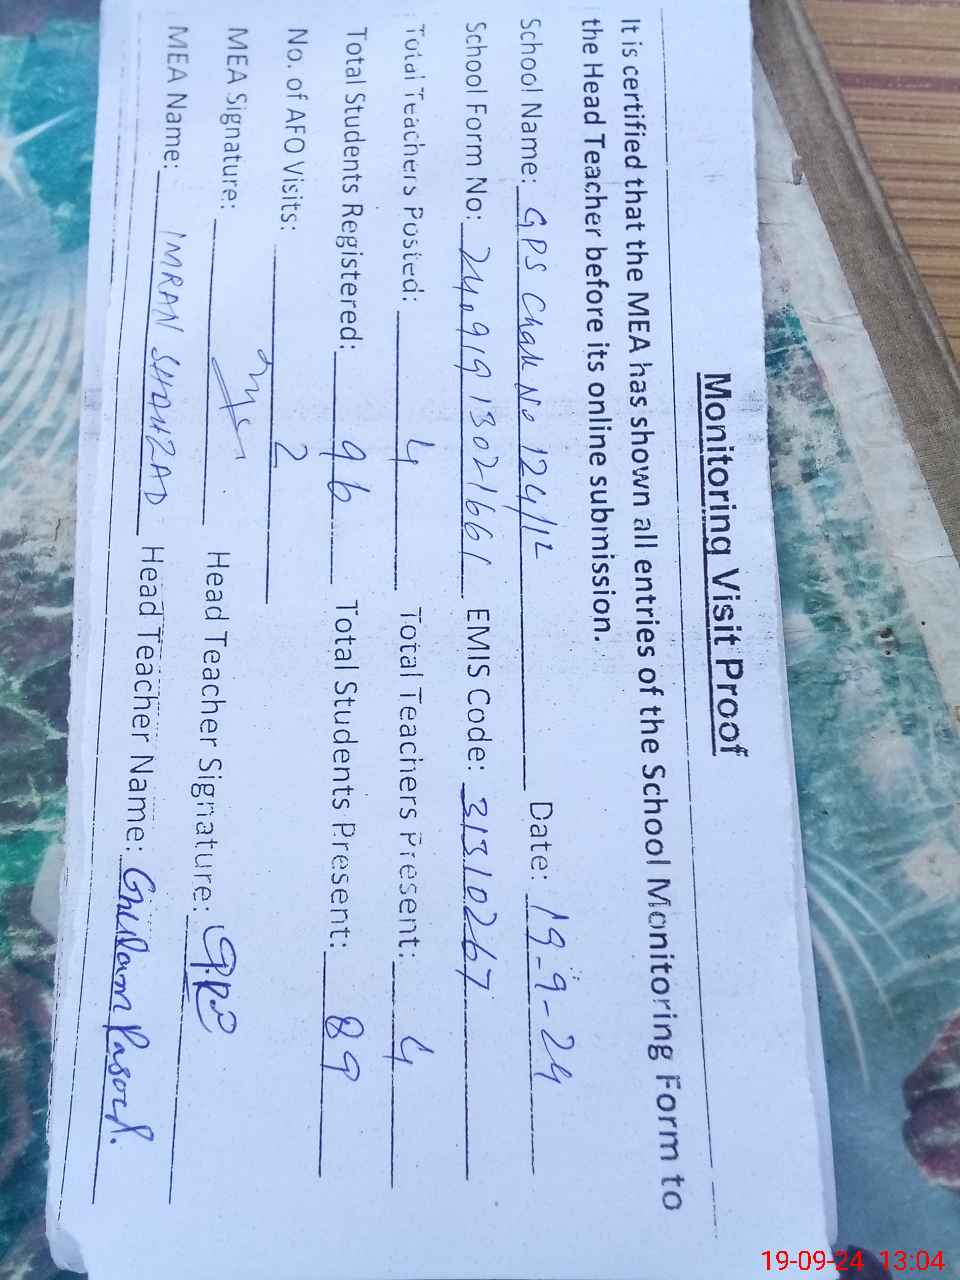 Monitoring Visit Proof
It is certified that the MEA has shown all entries of the School Monitoring Form to
the Head Teacher before its online submission.
School Name: GPS Chak No 124/12 Date: 19-9-24
School Form No: 24.91913021661 EMIS Code: 31310267
Total Teachers Posted: 4 Total Teachers Present: 4
Total Students Registered: 96 Total Students Present: 89
No. of AFO Visits: 2
MEA Signature: Head Teacher Signature:
MEA Name: IMRAN SHAHZAD Head Teacher Name: Ghulam Rasool.
19-09-24 13:04